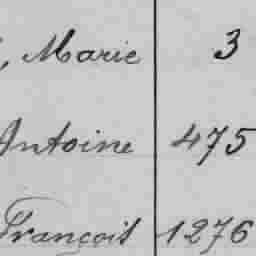 , Marie 3
Antoine 475
François 1276